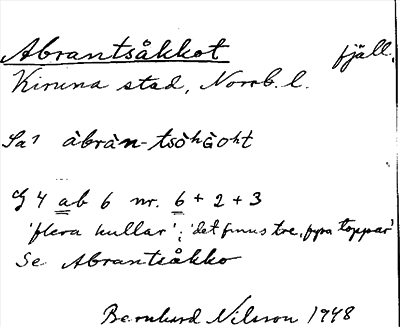 Abrantsåkkot fjäll.
Kiruna stad, Norrb. l.
àbràn-tsòʰG̀oʰt
G 4 ab 6 nr. 6 + 2 + 3
'flera kullar'; 'det finns tre, fyra toppar'
Se Abrantsåkko
Bernhard Nilsson 1948